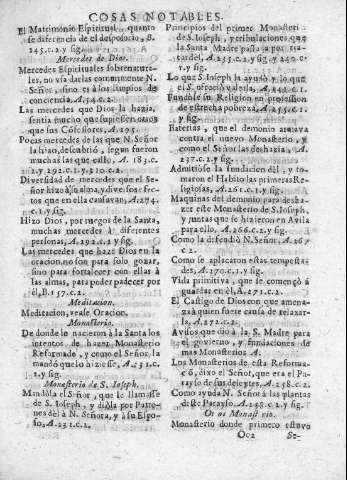 COSAS NOTABLES.
El Matrimonio Espiritual, quanto
se diferencia de el desposorio, B.
245.c.2.y sig.
Mercedes de Dios.
Mercedes Espirituales sobrenatura-
les, no via darlas comunmente N.
Señor, sino es à los limpios de
conciencia, A.54.c.2.
Las mercedes que Dios la hazia,
sentia mucho que supiessen otros
que sus Cōfessores. A.295.
Pocas mercedes de las que N. Señor
la hizo, descubriò, segun fueron
muchas las que callò, A. 183.c.
2.y 292.c.1.y 310.c.2.
Diversidad de mercedes que el Se-
ñor hizo à su alma, y diversos efec-
tos que en ella causavan, A.274.
c.1.y sig.
Hizo Dios, por ruegos de la Santa,
muchas mercedes à diferentes
personas, A.292.c.2 y sig.
Las mercedes que haze Dios en la
oracion, no son para solo gozar,
sino para fortalecer con ellas à
las almas, para poder padecer por
èl, B.157.c.2.
Meditacion.
Meditacion, vease Oracion.
Monasterio.
De donde le nacieron à la Santa los
intentos de hazer Monasterio
Reformado, y como el Señor, la
mandò que lo hiziesse, A.231.c.1.
2.y sig.
Monasterio de S. Joseph.
Mandòla el Señor, que le llamasse
de S. Joseph, y diòla por Patro-
nes dèl à N. Señora, y à su Espo-
so, A.231.c.2.
Principios del primer Monasteri
de S. Joseph, y tribulaciones que
la Santa Madre passa a por tra-
tar del, A.233.c.2.y sig. y 240.c.
1.y sig.
Lo que S. Joseph la ayudò y lo que
el S. ofreciò valerla, A.241.c.1.
Fundòse su Religion en profession
de estrecha pobreza, A.255.c.1.
y sig.
Baterias, que el demonio armava
contra el nuevo Monasterio, y
como el Señor las deshazia, A.
237.c.2.y sig.
Admitiòse la fundacion dèl, y to-
maron el Habito las primeras Re-
ligiosas, A.261.c.1.y sig.
Maquinas del demonio para desha-
zer este Monasterio de S. Joseph,
y juntas que se hizieron en Avila
para ello. A.266.c.2.y sig.
Como la defendiò N. Señor, A.267
c.2.
Como se aplacaron estas tempesta-
des, A.270.c.1.y sig.
Vida primitiva, que se començò à
guardar en èl, A.271.c.2.
El Castigo de Dios con que amena-
zà à quien fuere causa de relaxar-
la, A.272.c.2.
Avisos que diò à la S. Madre para
el govierno, y fundaciones de
mas Monasterios A.
Los Monasterios de esta Reforma-
cō, dixo el Señor, que era el Pa-
rayso de sus deleytes, A.258.c.2.
Como ayuda N. Señor à las plantas
deste Parayso, A.258.c.2.y sig.
Monasterio donde primero estuvo
Oo2 Se-